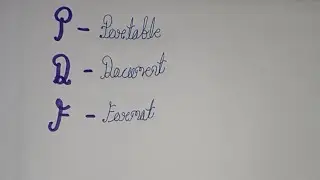 P - Portable
D - Document
F - Format